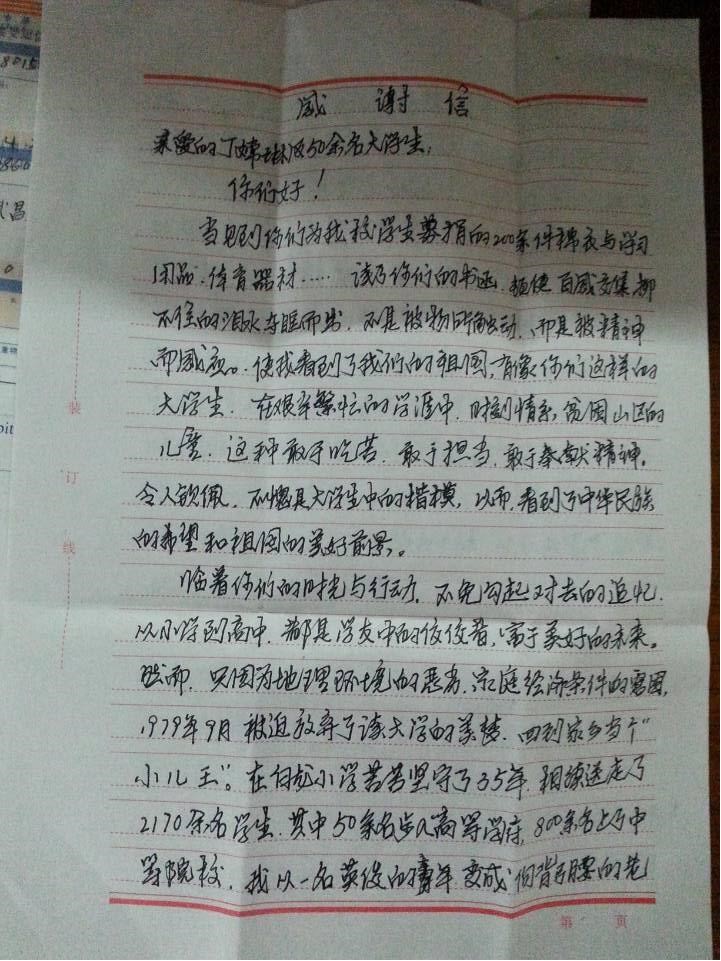 感谢信
亲爱的丁婵琳及50余名大学生:
你们好!
当见到你们为我校学生募捐的200余件棉衣与学习
用品、体育器材…… 读了你们的书函,随使百感交集抑
不住的泪水夺眶而出,不是被物所触动,而是被精神
而感颜。使我看到了我们的祖国,有像你们这样的
大学生,在艰辛繁忙的学涯中,时刻情系贫困山区的
儿童,这种敢于吃苦,敢于担当,敢于奉献精神,
令人钦佩,不愧是大学生中的楷模,从而,看到了中华民族
的希望和祖国的美好前景。
临着你们的时光与行动,不免勾起对去的追忆,
从小学到高中,都是学友中的佼佼者,富于美好的未来。
然而,只因为地理环境的恶劣,家庭经济条件的穷困,
1979年9月被迫放弃了读大学的美梦,回到家乡当个“
小儿王”。在白龙小学苦苦坚守了35年,相续送走了
2170余名学生,其中50余名步入高等学府,800余名上了中
等院校,我从一名英俊的青年变成佝背弓腰的老
第 页
装
订
线
8015